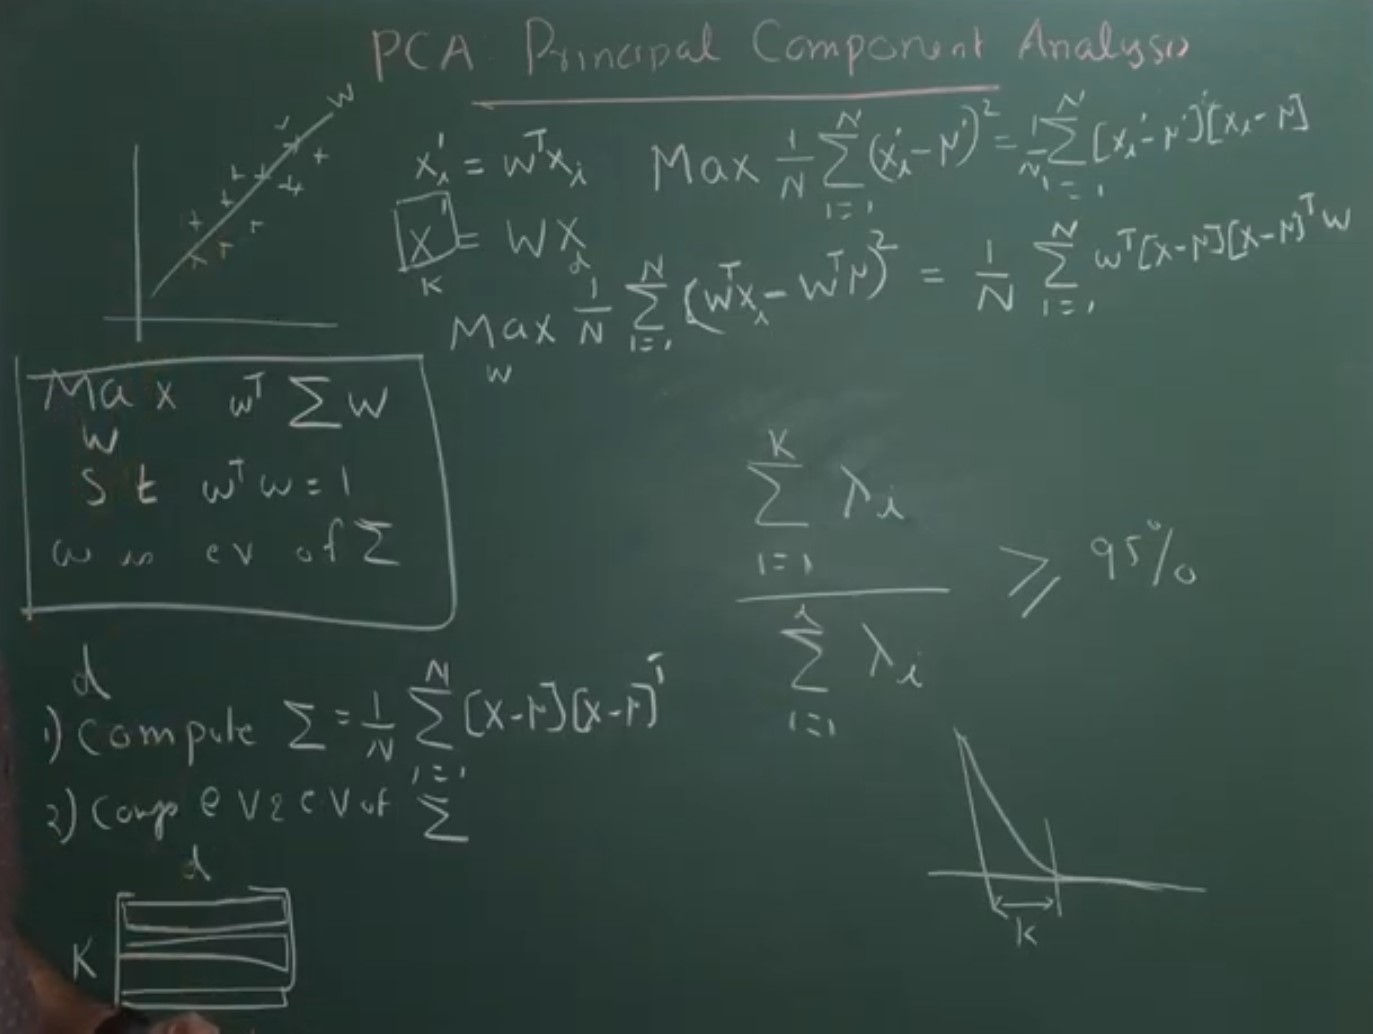 PCA Principal Component Analysis
W
x'ᵢ = wᵀxᵢ
Max 1/N Σᵢ₌₁ᴺ (x'ᵢ - μ')² = 1/N Σᵢ₌₁ᴺ [xᵢ' - μ'][xᵢ - μ]
x' = W x
K d
Max 1/N Σᵢ₌₁ᴺ (wᵀxᵢ - wᵀμ)² = 1/N Σᵢ₌₁ᴺ wᵀ[x-μ][x-μ]ᵀw
w
Max wᵀ Σ w
w
S t wᵀw = 1
w is ev of Σ
Σᵢ₌₁ᴷ λᵢ / Σᵢ₌₁ᵈ λᵢ ≥ 95%
d
1) Compute Σ = 1/N Σᵢ₌₁ᴺ [x-μ][x-μ]ᵀ
2) Comp e V & e V of Σ
d
K
k